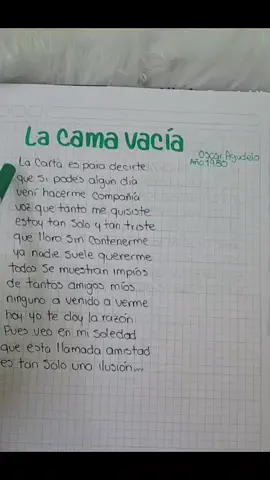 La cama vacía
Oscar Agudelo
Año 1980
La Carta es para decirte
que si podes algun día
vení hacerme compañía
voz que tanto me quisiste
estoy tan solo y tan triste
que lloro sin contenerme
ya nadie suele quererme
todos se muestran impíos
de tantos amigos míos
ninguno a venido a verme
hoy yo te doy la razón
Pues veo en mi soledad
que esta llamada amistad
es tan solo una ilusión...